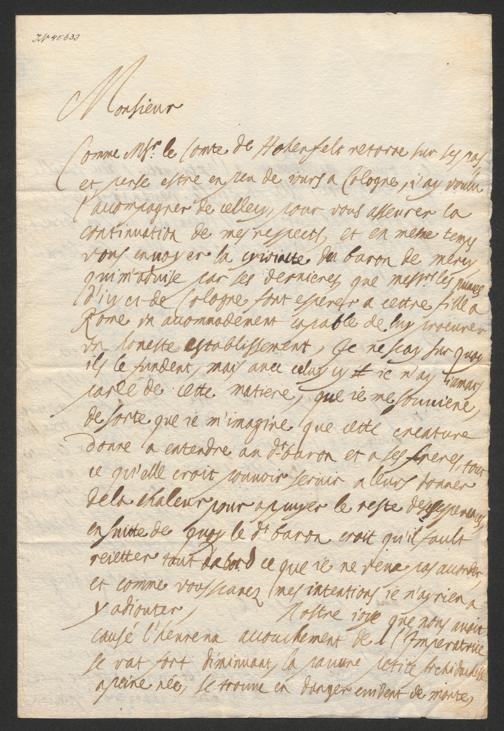 Monsieur
Comme Msr. le Comte de Hohenfels retorne sur ses pas
et pense estre en peu de iours a Cologne, i'ay voulu
l'accompagner de celle cy, pour vous asseurer la
continuation de mes respects, et en méme temps
vous envoyer la cyiointe du baron de mercy
qui m'advise par ses dernieres que messrs les
d'icy et de Cologne font esperer a cettre fille a
Rome un accommodement capable de luy procurer
un honeste establissement, Je ne scay sur quoy
ils le fondent, mais avec celuy cy ie n'ay iamais
parlé de cette matiere, que ie me souviene,
de sorte que ie m'imagine que cette creature
donne a entendre au dt. baron et a ses freres, tout
ce qu'elle croit pouvoir servir a leurs donner
de la chaleur pour apuyer le reste de
en suitte de quoy le dt. baron croit qu'il fault
reietter tout dabord ce que ie ne devra pas accorder
et comme vous scavez mes intentions ie n'ay rien a
y adiouter, Nostre ioye que nous avoit
causé l'heureux accouchement de l'Imperatrice
se vat fort diminuant, la pauvre petite Archiduchesse
a peine née, se trouve en danger evident de morte,